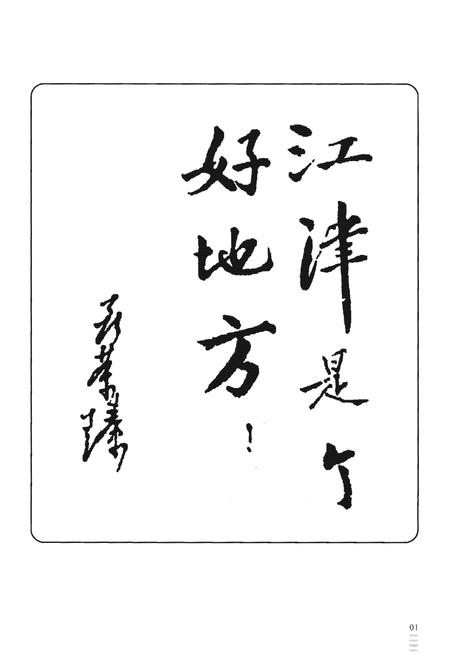 江津是个
好地方！
聂荣臻
01